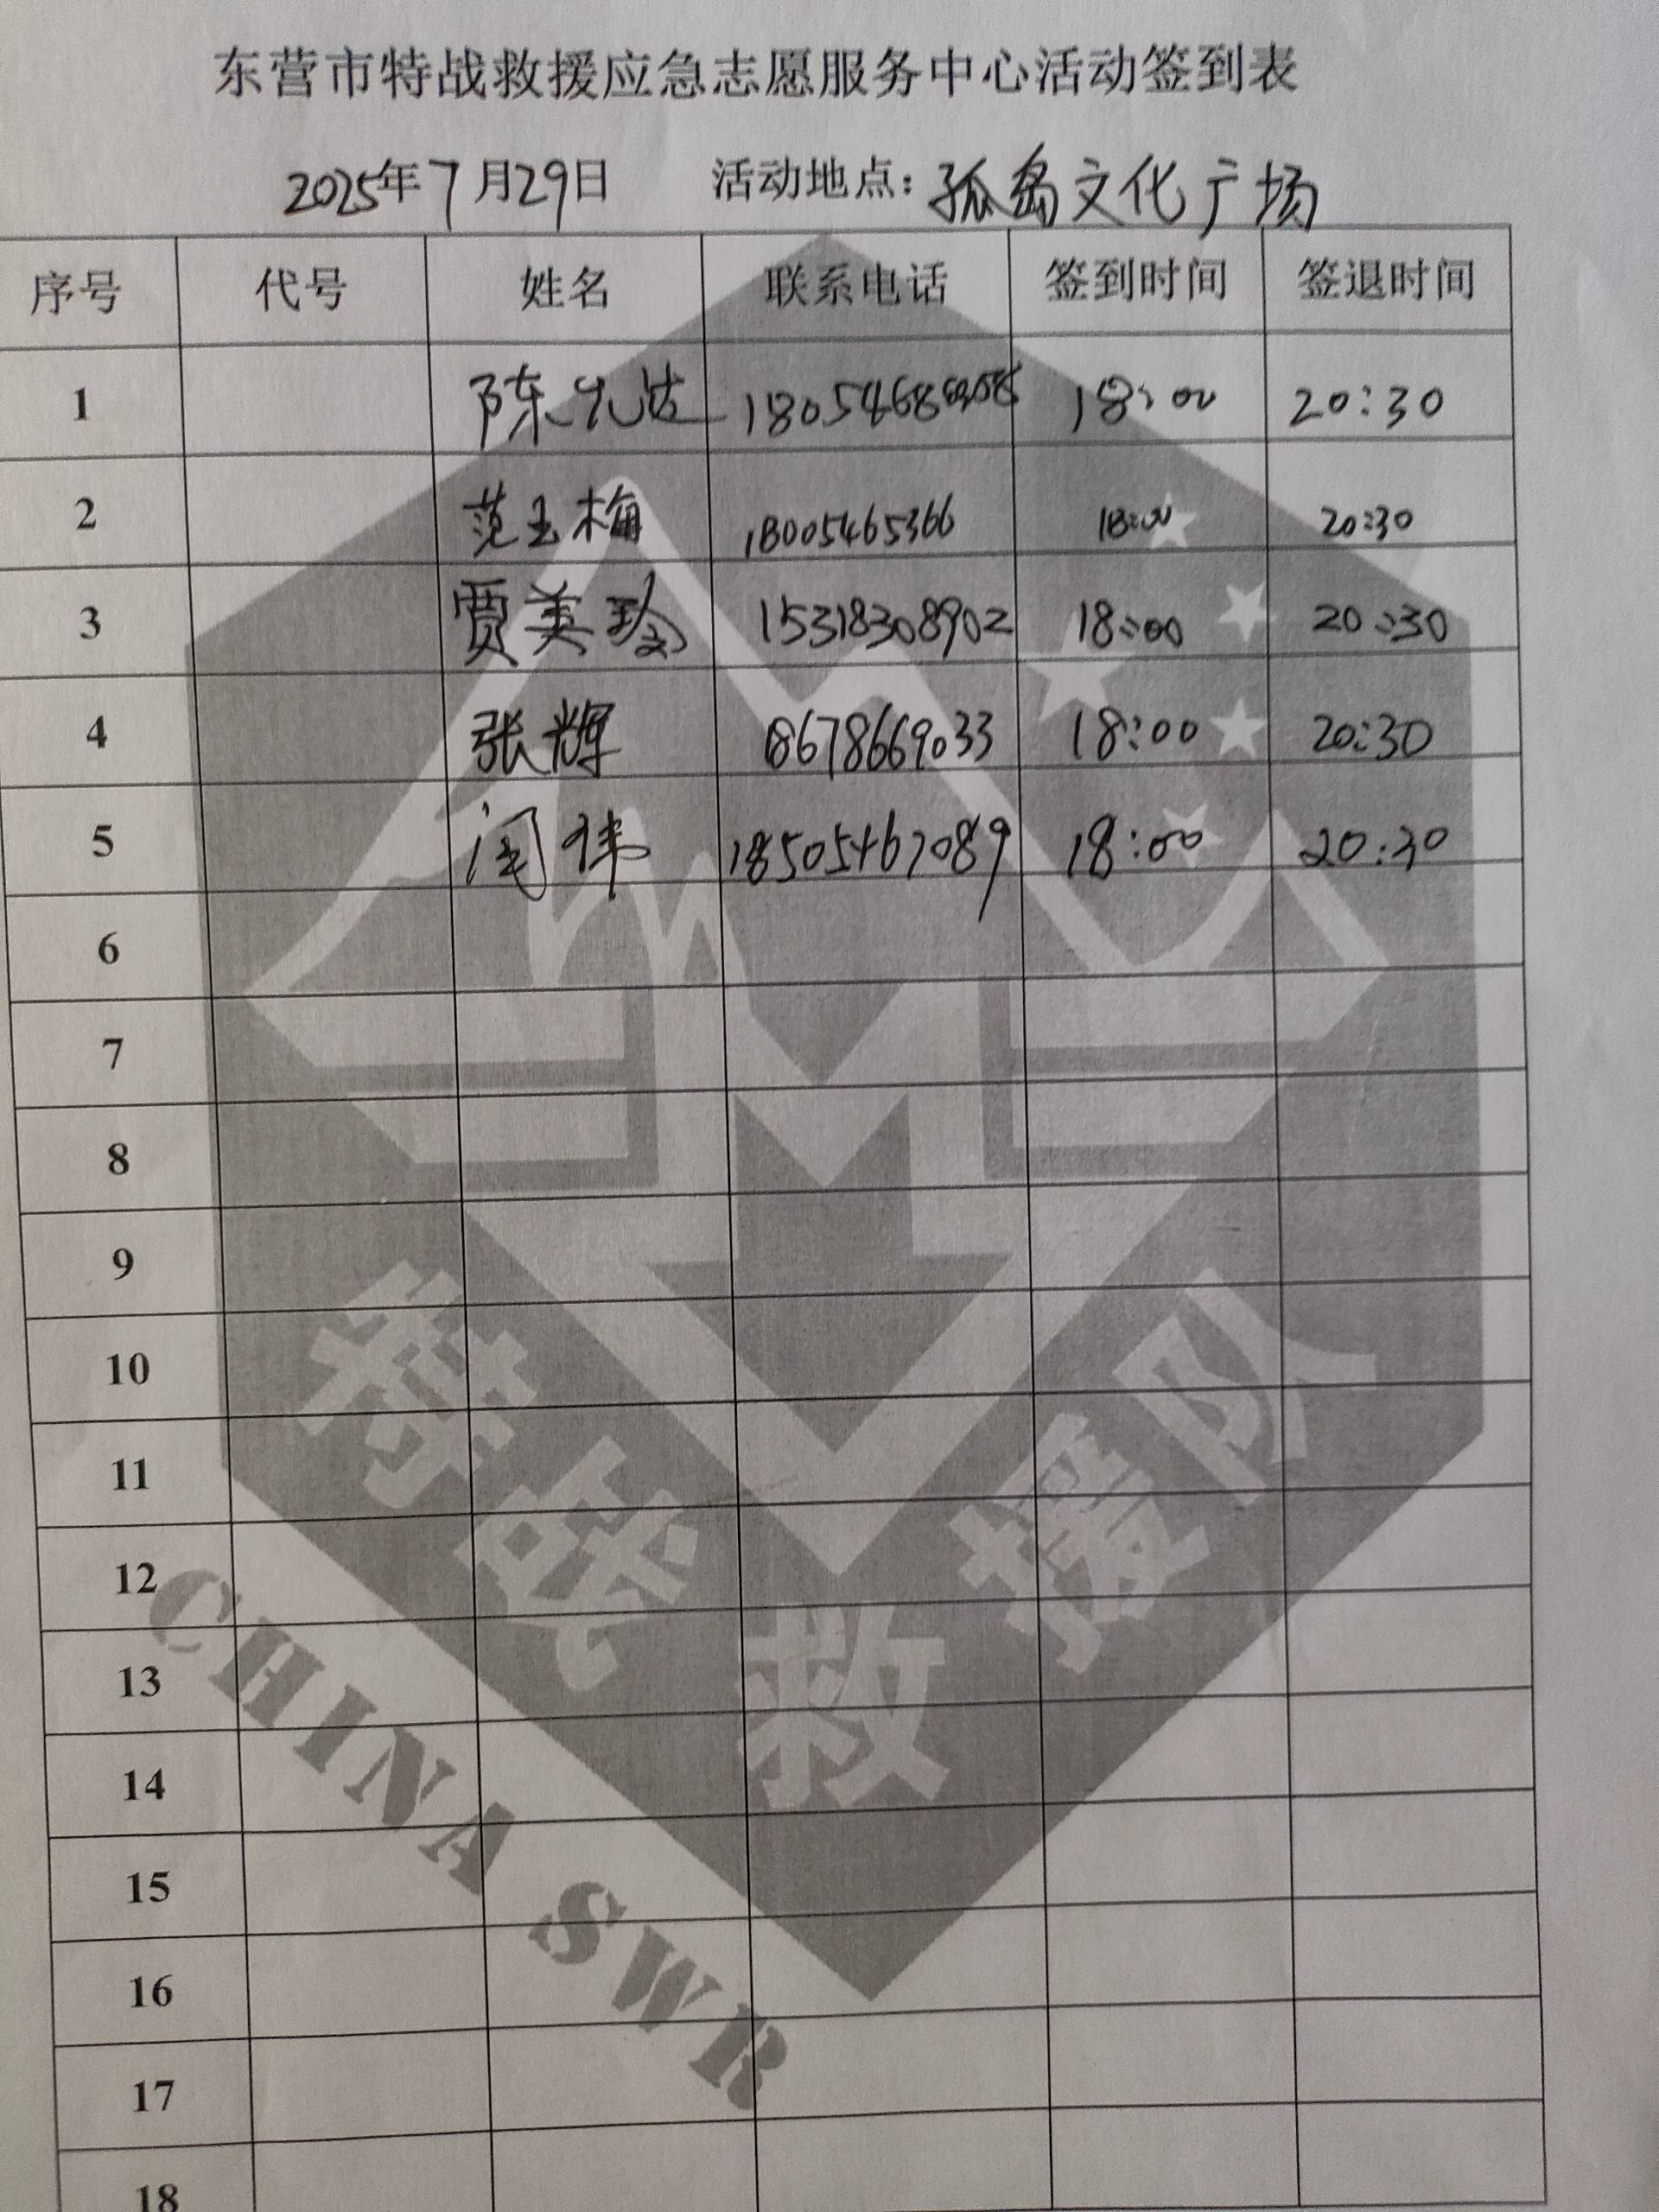 东营市特战救援应急志愿服务中心活动签到表
2025年7月29日 活动地点：孤岛文化广场
序号 代号 姓名 联系电话 签到时间 签退时间
1 陈 18:00 20:30
2 范玉梅 18005465366 18:00 20:30
3 贾美玲 15318308902 18:00 20:30
4 张辉 18678669033 18:00 20:30
5 闫伟 18505467089 18:00 20:30
6
7
8
9
10
11
12
13
14
15
16
17
18
特战救援队
CHINA SWR